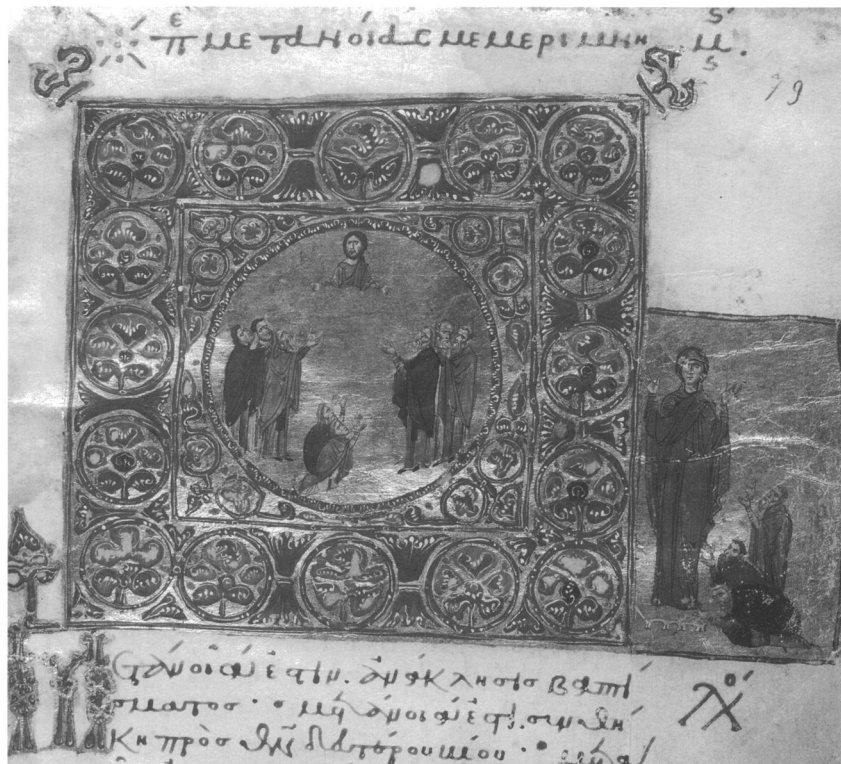 π μετανοίας μεμεριμνημ
79
Μετάνοιά ἐστιν. ἀνάκλησις βαπτί
σματος · μετάνοιά ἐστι. συνθή
κη πρὸς θν δευτέρου βίου ·